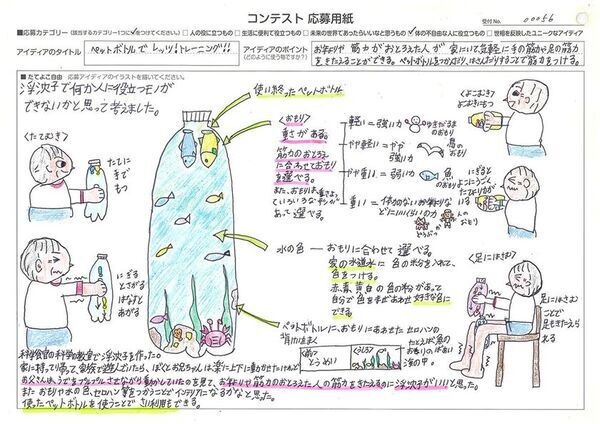 コンテスト 応募用紙
受付No. 00056
■応募カテゴリー(該当するカテゴリー1つに✓をつけてください) □人の役に立つもの □生活に便利で役立つもの □未来の世界であったらいいなと思うもの ☑体の不自由な方に役立つもの □世相を反映したユニークなアイディア
アイディアのタイトル
ペットボトルで レッツ!トレーニング!!
アイディアのポイント
(どのように使う物ですか?)
お年よりや 筋力がおとろえた人が 家にいて気軽に手の筋力や足の筋力
をきたえることができる。ペットボトルをつかんだり、はさんだりすることで筋力をつける。
■たてよこ自由 応募アイディアのイラストを描いてください。
浮沈子で何か人に役立つモノが
できないかと思って考えました。
使い終ったペットボトル
<たてむき>
たてに
手で
もつ
にぎる
とさがる
はなすと
あがる
<おもり>
重さがある。
筋力のおとろえ
に合わせておもり
を選べる。
また、おもりは、重さによ
って
あって選べる。
軽い=強い力
ゆきだるま
のおもり
やや軽い=やや
強い力
鳥の
おもり
やや重い=弱い力
魚
のおもり
重い=
人の
おもり
どうぶつ
<よこむき>
よこむきに
もつ
にぎると
ように
水の色—おもりに合わせて 選べる。
家の水道水に 色の粉を入れて、
色をつける。
赤、青、黄、白の色の粉があって
自分で色をまぜあわせ 好きな色に
できる。
ペットボトルに、おもりにあわせた セロハン
背景をまく
とうめい
たとえば魚
のおもりのばあい
海の中。
<足にはさむ>
足にはさむ
ことで
足もきたえられ
る
科学館の科学の教室で浮沈子を作った。
家に持って帰って家族で遊んでいたら、ぼくとお兄ちゃんは楽に上下に動かせたけれど
お父さんは、うでをプルプルさせながら動かしていたのを見て、お年よりや筋力のおとろえた人の筋力をきたえるのに浮沈子がいいと思った。
また おもりや水の色、セロハン等をつかうことでインテリアになるかなと思う。
使ったペットボトルを使うことで さい利用もできる。